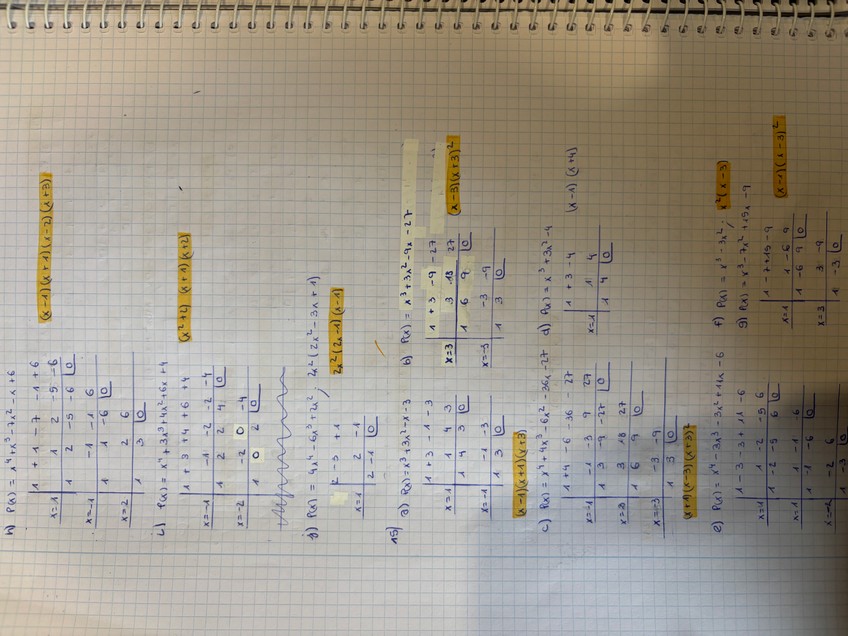 h) P(x) = x⁴+x³-7x²-x+6
1 +1 -7 -1 +6
x=1 1 2 -5 -6
1 2 -5 -6 0
x=-1 -1 -1 6
1 1 -6 0
x=2 2 6
1 3 0
(x-1)(x+1)(x-2)(x+3)
i) P(x) = x⁴+3x³+4x²+6x+4
1 +3 +4 +6 +4
x=-1 -1 -2 -2 -4
1 2 2 4 0
x=-2 -2 0 -4
1 0 2 0
(x²+2) (x+1)(x+2)
j) P(x) = 4x⁴-6x³+2x² ; 2x²(2x²-3x+1)
2 -3 +1
x=1 2 -1
2 -1 0
2x²(2x-1)(x-1)
15)
a) P(x)=x³+3x²-x-3
1 +3 -1 -3
x=1 1 4 3
1 4 3 0
x=-1 -1 -3
1 3 0
(x-1)(x+1)(x+3)
b) P(x) = x³+3x²-9x-27
1 +3 -9 -27
x=3 3 18 27
1 6 9 0
x=-3 -3 -9
1 3 0
(x-3)(x+3)²
c) P(x) = x⁴+4x³-6x²-36x-27
1 +4 -6 -36 -27
x=-1 -1 -3 9 27
1 3 -9 -27 0
x=3 3 18 27
1 6 9 0
x=-3 -3 -9
1 3 0
(x+1)(x-3)(x+3)²
d) P(x) = x³+3x²-4
1 +3 -4
x=1 1 4
1 4 0
(x-1) (x+4)
e) P(x) = x⁴-3x³-3x²+11x-6
1 -3 -3 +11 -6
x=1 1 -2 -5 6
1 -2 -5 6 0
x=1 1 -1 -6
1 -1 -6 0
x=-2 -2 6
1 -3 0
f) P(x) = x³-3x² ; x²(x-3)
g) P(x) = x³-7x²+15x-9
1 -7 +15 -9
x=1 1 -6 9
1 -6 9 0
x=3 3 -9
1 -3 0
(x-1)(x-3)²